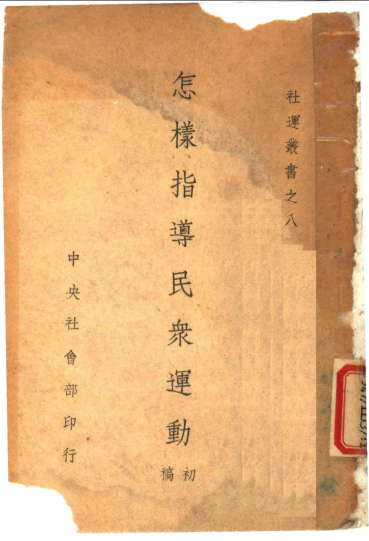 社運叢書之八
怎樣指導民衆運動
初稿
中央社會部印行